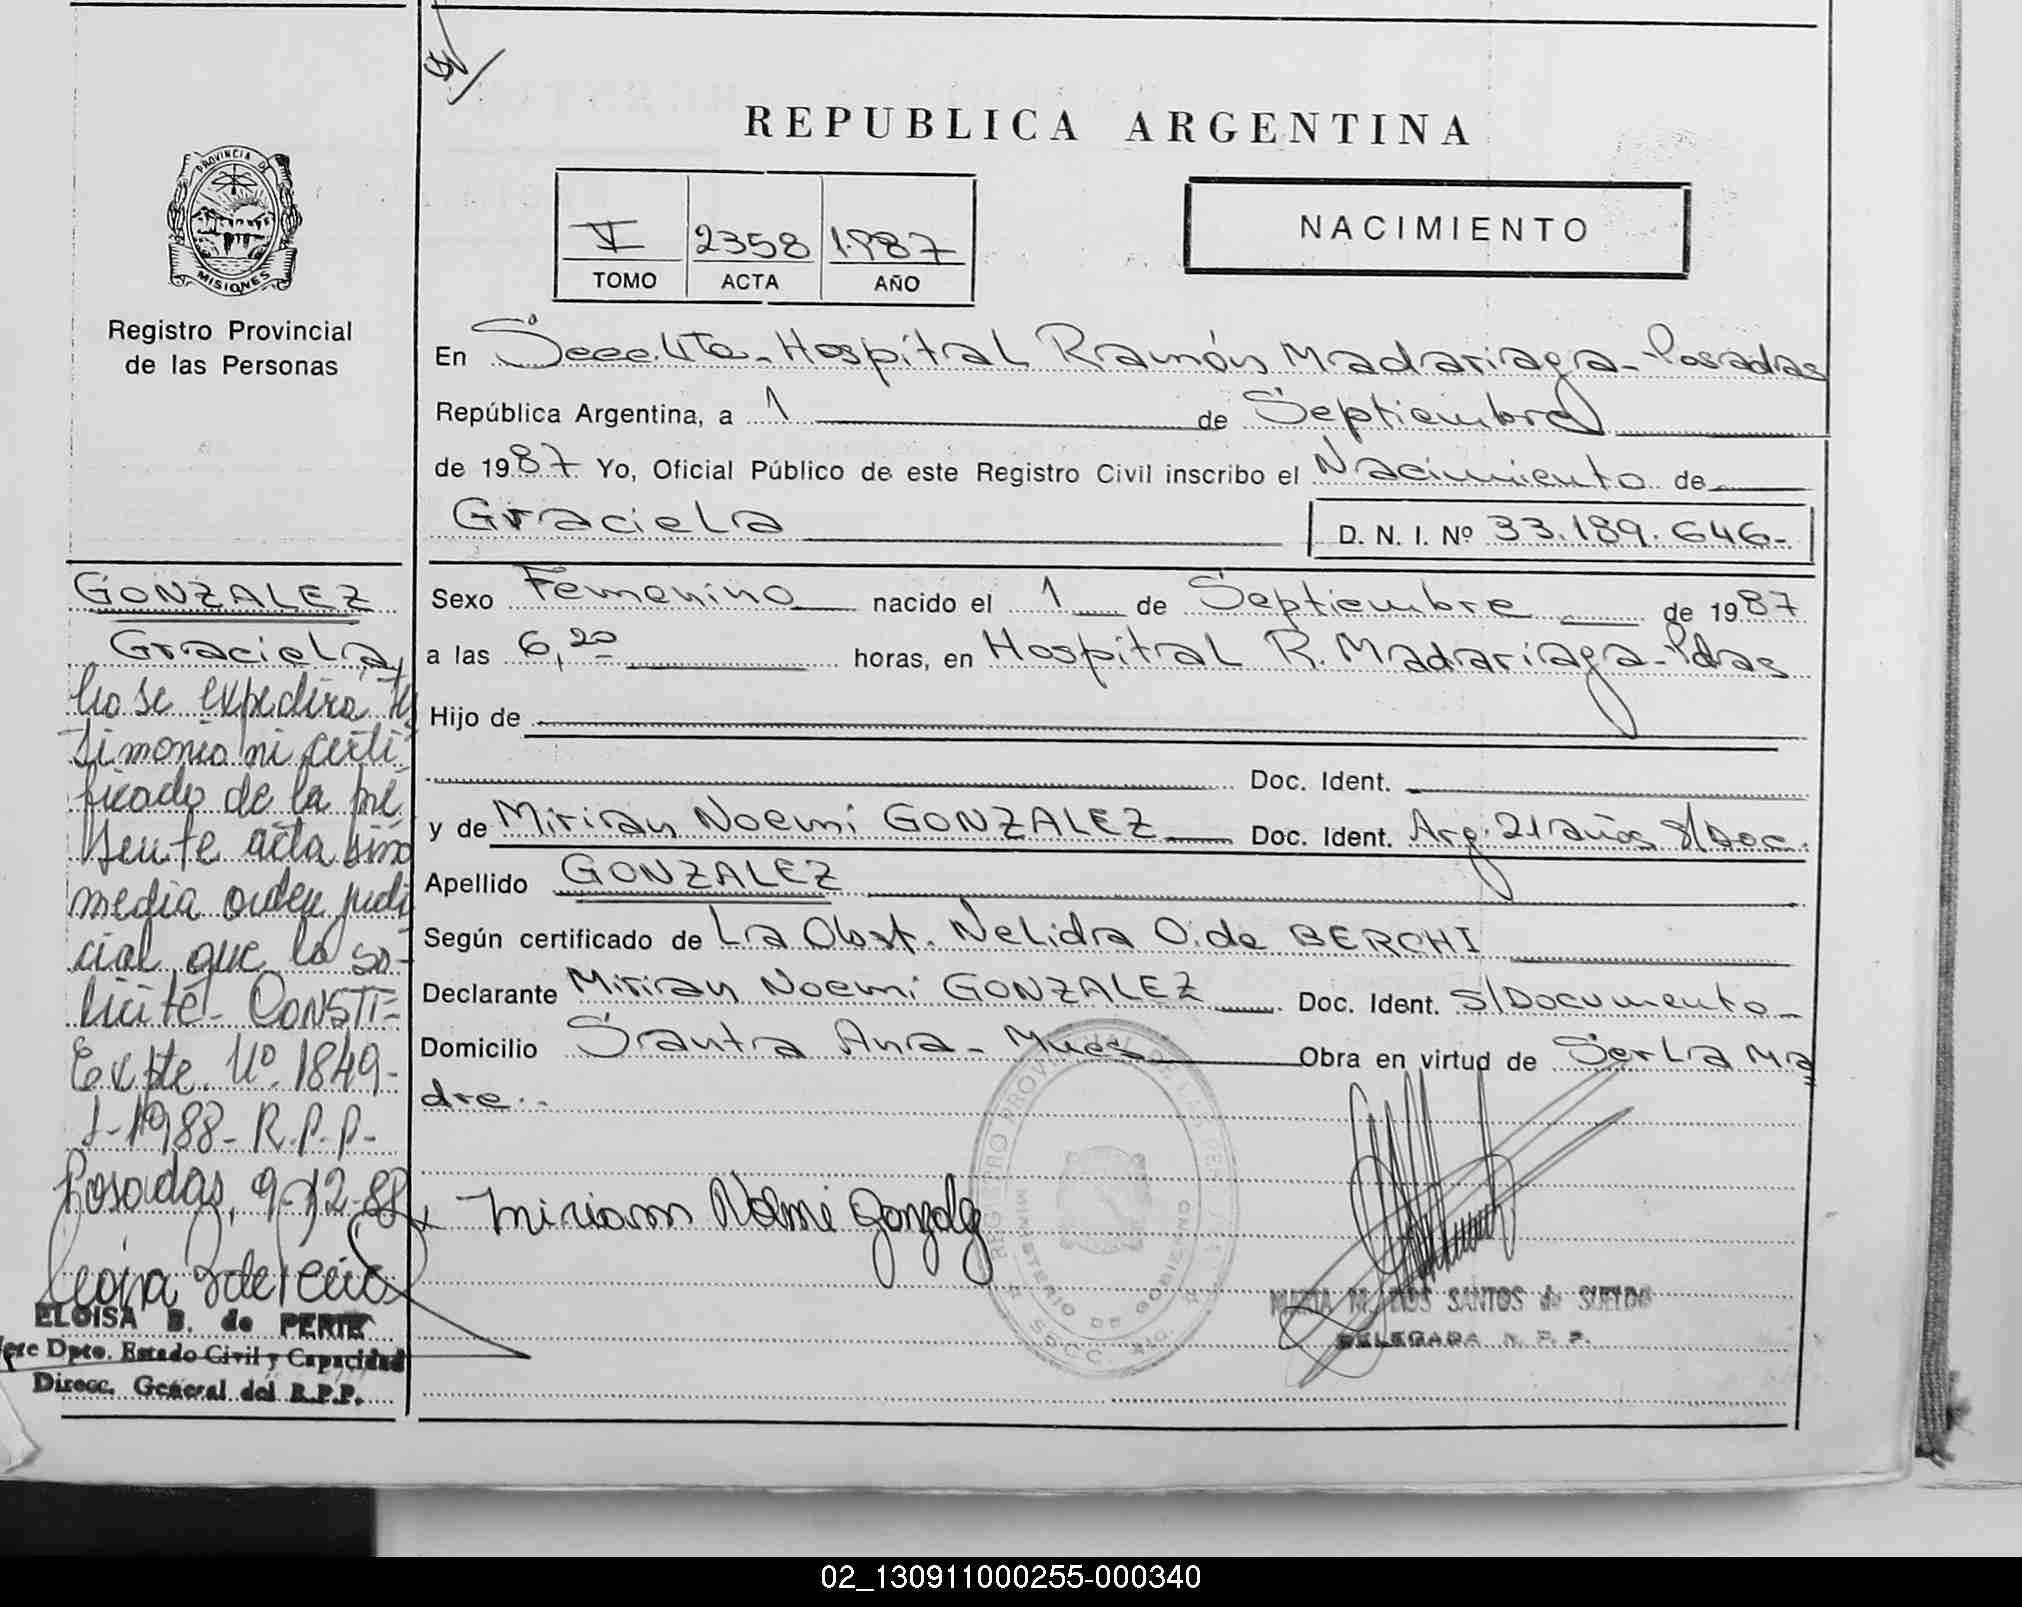 REPUBLICA ARGENTINA
PROVINCIA DE
MISIONES
Registro Provincial
de las Personas
V 2358 1987
TOMO ACTA AÑO
NACIMIENTO
En Secc. 4Ta - Hospital Ramón Madariaga - Posadas
República Argentina, a 1 de Septiembre
de 1987 Yo, Oficial Público de este Registro Civil inscribo el Nacimiento de
Graciela
D. N. I. Nº 33.189.646-
Sexo Femenino nacido el 1 de Septiembre de 1987
a las 6,20 horas, en Hospital R. Madariaga - Pdas
Hijo de
Doc. Ident.
y de Mirian Noemi GONZALEZ Doc. Ident. Arg. 21 años S/Doc.
Apellido GONZALEZ
Según certificado de La Obst. Nelida O. de BERCHI
Declarante Mirian Noemi GONZALEZ Doc. Ident. S/Documento
Domicilio Santa Ana - Mnes Obra en virtud de Ser La Ma
dre.
Miriam Noemi Gonzalez
REGISTRO PROVINCIAL DE LAS PERSONAS
MINISTERIO DE GOBIERNO
MARIA M. DOS SANTOS de SUELDO
DELEGADA R. P. P.
GONZALEZ
Graciela
No se expedira tes
timonio ni certi-
ficado de la pre
sente acta sino
media orden judi
cial que lo so-
licite - CONSTE=
Expte. Nº. 1849-
1988 - R.P.P.-
Posadas, 9-12-88
ELOISA B. de PERIE
Jefe Dpto. Estado Civil y Capacidad
Direcc. General del R.P.P.
02_130911000255-000340